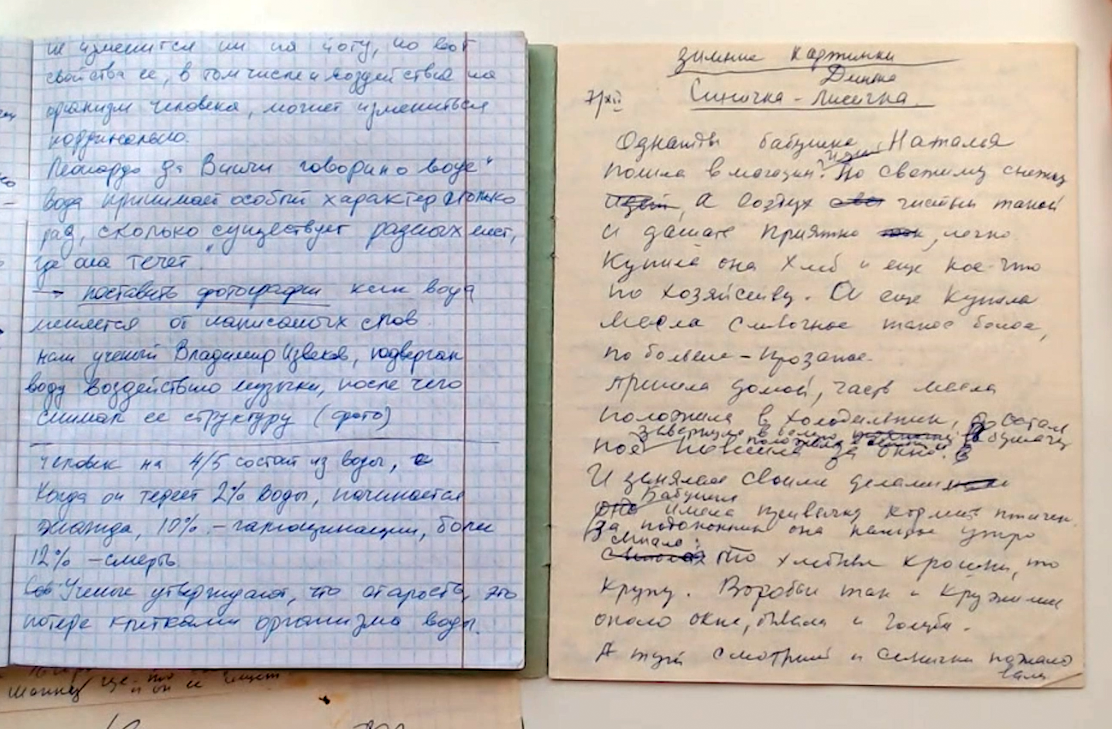 не изменится ни на йоту, но вот
свойства ее, в том числе и воздействие на
организм человека, может измениться
кардинально.
Леонардо да Винчи говорил о воде "
Вода принимает особый характер столько
раз, сколько существует разных мест,
где она течет."
→ поставить фотографии как вода
меняется от написанных слов.
Наш ученый Владимир Извеков, подвергал
воду воздействию музыки, после чего
снимал ее структуру (фото)
Человек на 4/5 состоит из воды,
Когда он теряет 2% воды, начинается
жажда, 10% - галлюцинации, более
12% - смерть
Ученые утверждают, что старость, это
потеря клетками организма воды.
Зимние картинки
Синичка - Лисичка.
7/XII
Однажды бабушка Наталья
пошла в магазин. По свежему снежку
А воздух чистый такой
и дышать приятно, легко
Купила она хлеб и еще кое-что
по хозяйству. А еще купила
масла сливочное такое белое,
пришла домой, часть масла
положила в холодильник, остал
завернула в бумагу
повесила за окно.
И занялась своими делами
Бабушка имела привычку кормить птичек.
За подоконник она каждое утро
сыпала:
то хлебные крошки, то
крупу. Воробьи так и кружили
около окна, бывали и голуби.
А тут смотрит и синички пожало
вали